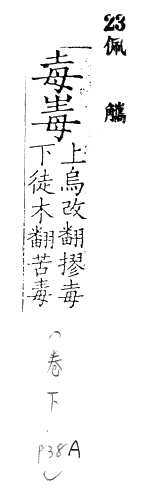 23 佩觿
毐毒
上烏改翻摎毐
下徒木翻苦毒
(卷下 p38A)